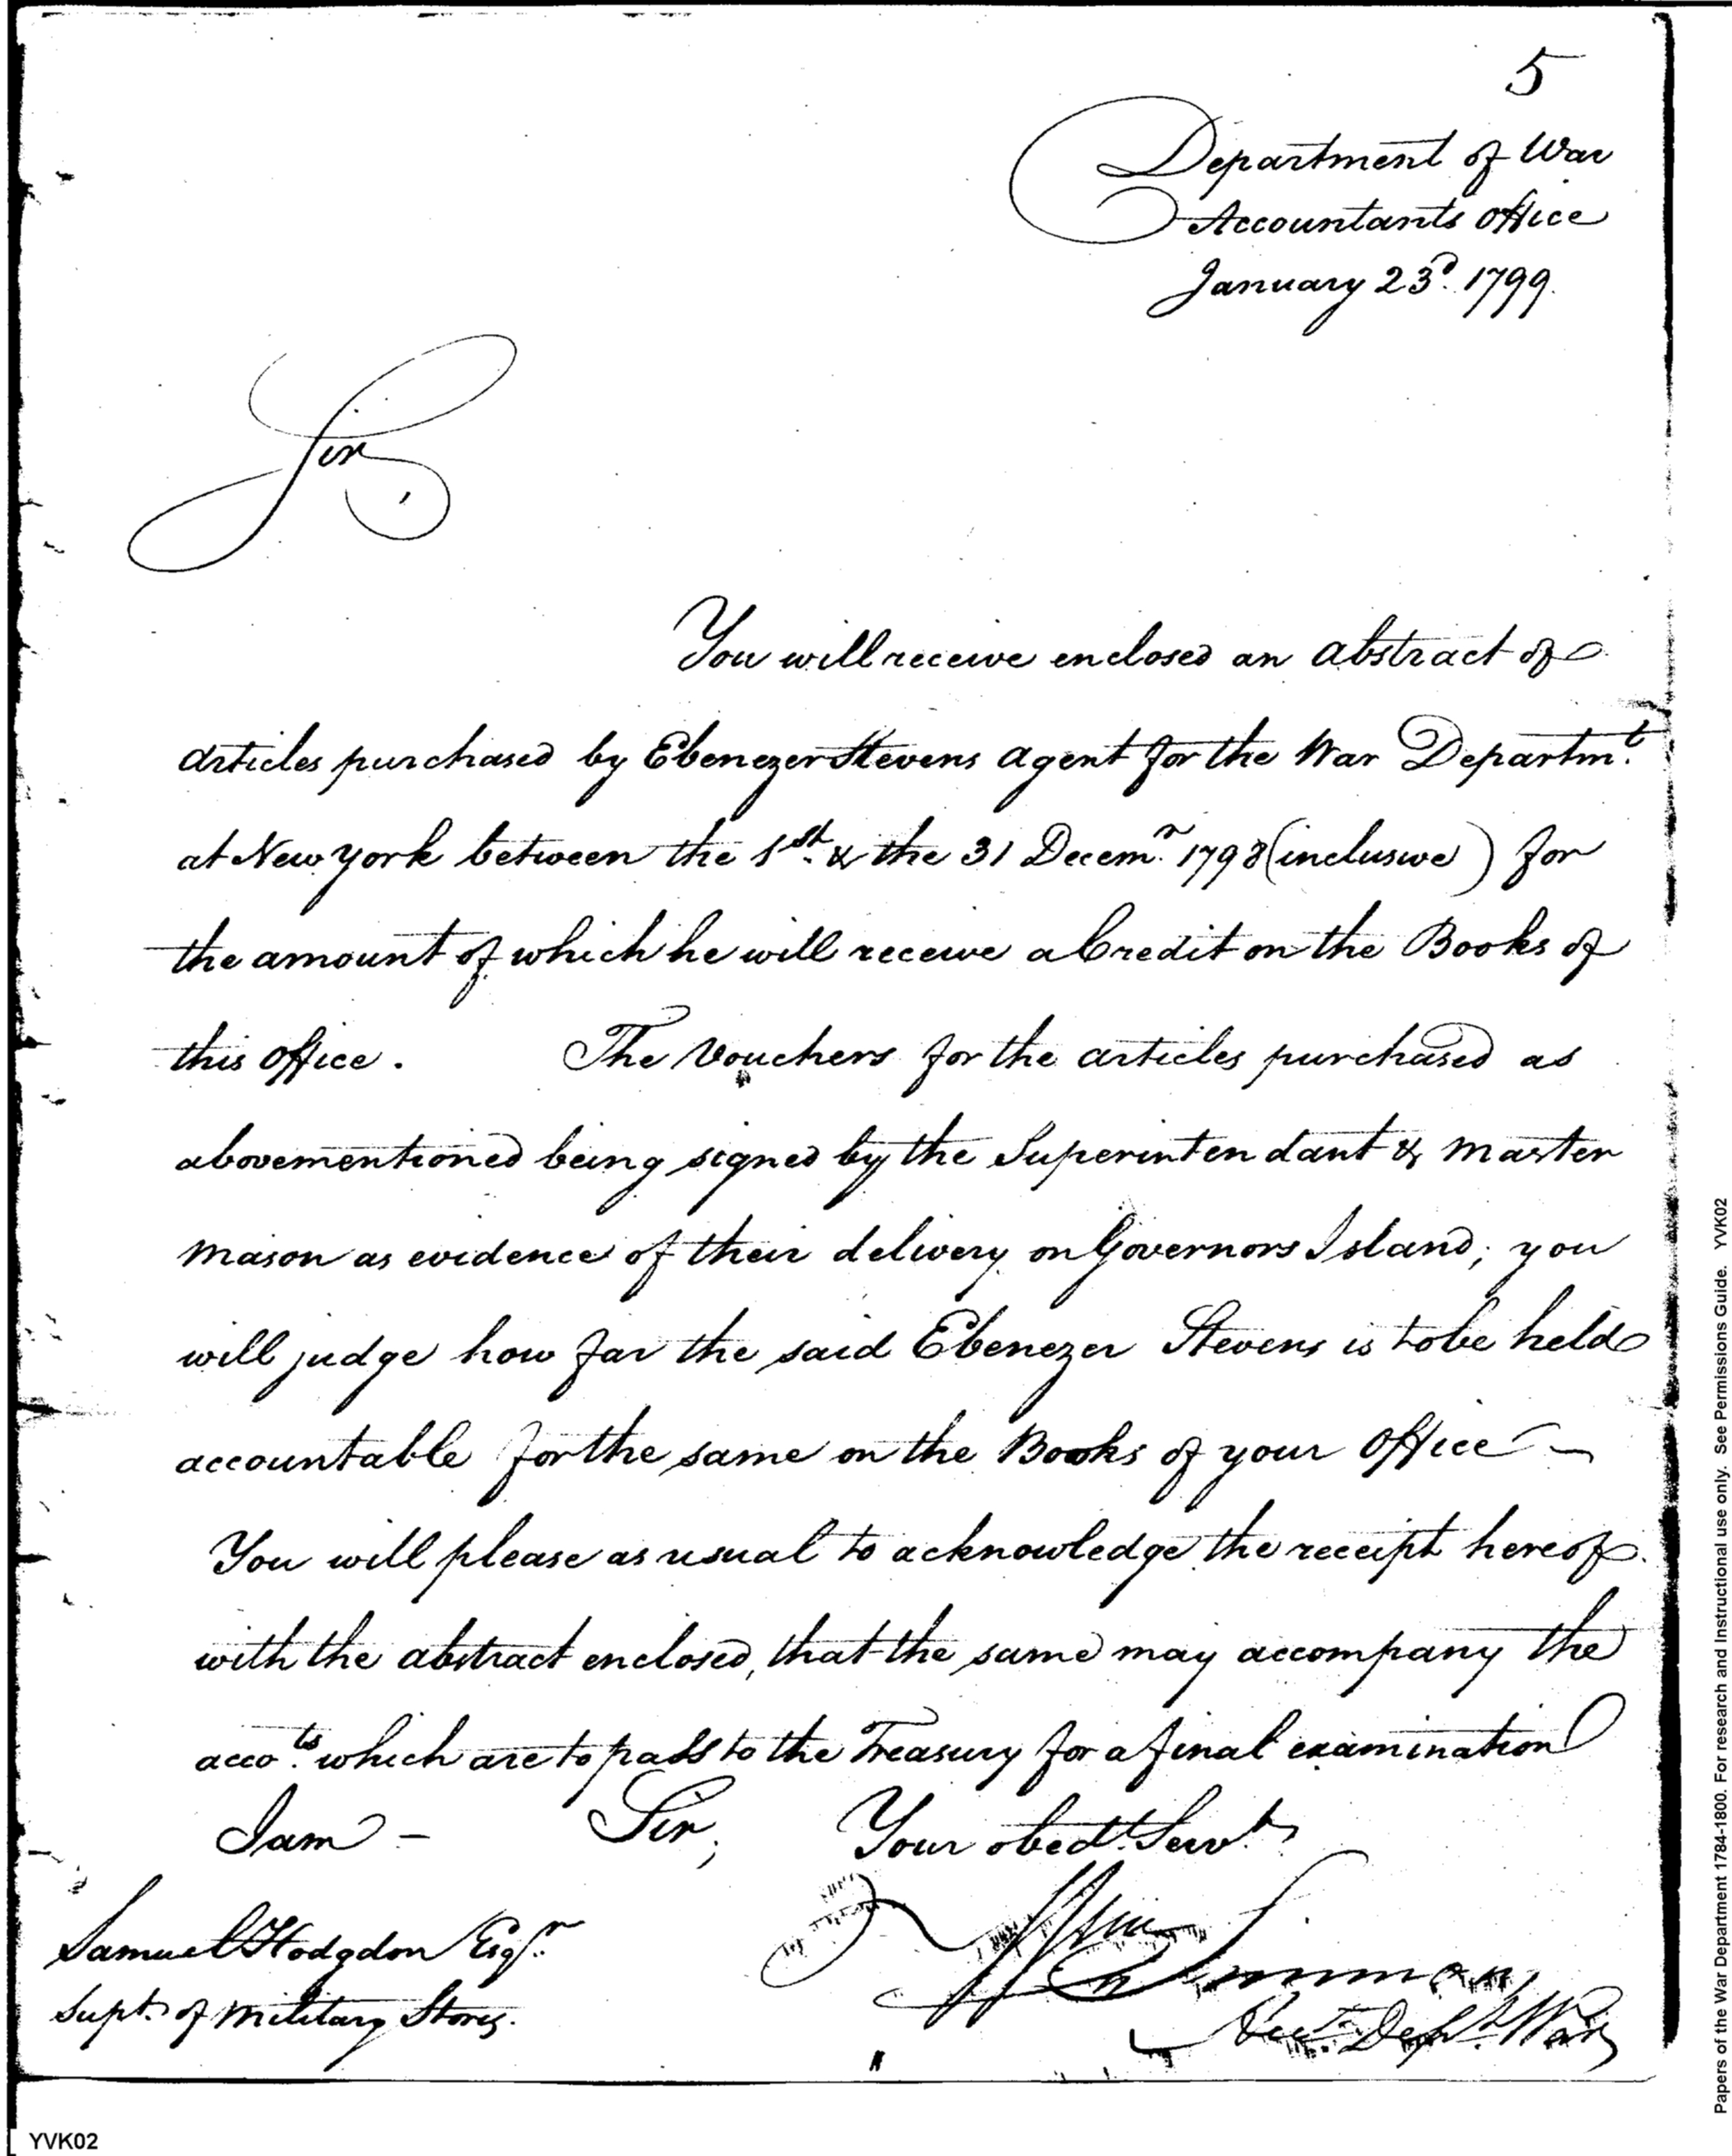 5
Department of War
Accountants office
January 23d. 1799.
Sir,
You will receive enclosed an abstract of
articles purchased by Ebenezer Stevens agent for the War Departmt.
at New york between the 1st. & the 31 Decemr. 1798 (inclusive) for
the amount of which he will receive a Credit on the Books of
this office. The Vouchers for the articles purchased as
abovementioned being signed by the Superintendant & Master
Mason as evidence of their delivery on Governors Island; you
will judge how far the said Ebenezer Stevens is to be held
accountable for the same on the Books of your Office —
You will please as usual to acknowledge the receipt hereof
with the abstract enclosed, that the same may accompany the
accots. which are to pass to the Treasury for a final examination
I am — Sir, Your obedt. Servt.
Samuel Hodgdon Esqr.
Wm Simmons
Supt. of Military Stores.
Acct. Dept. War
Papers of the War Department 1784-1800. For research and Instructional use only. See Permissions Guide. YVK02
YVK02